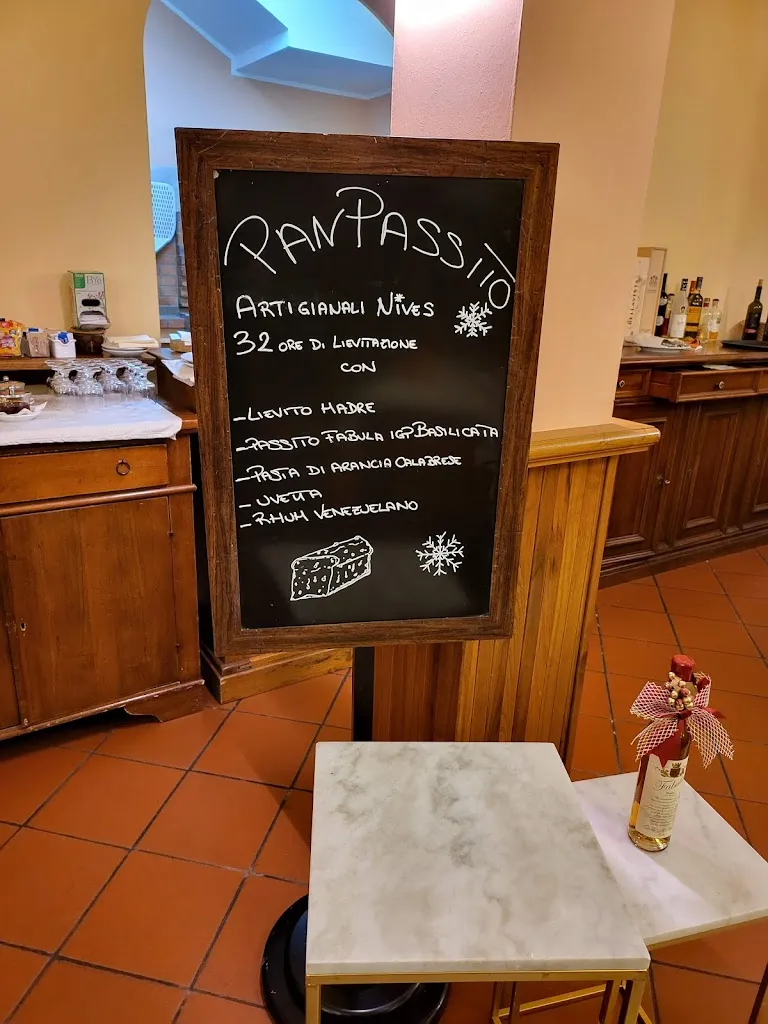 PANPASSITO
ARTIGIANALI NIVES
32 ORE DI LIEVITAZIONE
CON
-LIEVITO MADRE
-PASSITO FABULA IGP BASILICATA
-PASTA DI ARANCIA CALABRESE
-UVETTA
-RHUM VENEZUELANO
Fabula